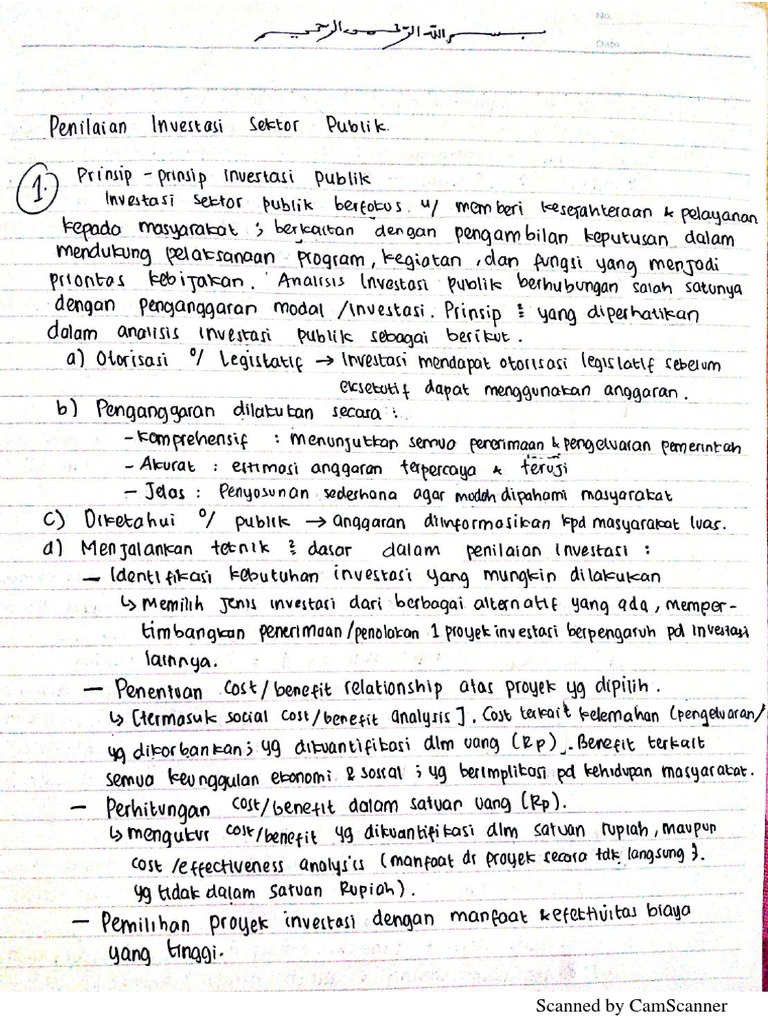 بسم الله الرحمن الرحيم
No.
Date
Penilaian Investasi Sektor Publik.
1. Prinsip - prinsip investasi publik
Investasi sektor publik berfokus u/ memberi kesejahteraan & pelayanan
kepada masyarakat ; berkaitan dengan pengambilan keputusan dalam
mendukung pelaksanaan program, kegiatan, dan fungsi yang menjadi
prioritas kebijakan. Analisis Investasi publik berhubungan salah satunya
dengan penganggaran modal /investasi. Prinsip ² yang diperhatikan
dalam analisis investasi publik sebagai berikut.
a) Otorisasi o/ Legislatif → Investasi mendapat otorisasi legislatif sebelum
eksekutif dapat menggunakan anggaran.
b) Penganggaran dilakukan secara :
- Komprehensif : menunjukkan semua penerimaan & pengeluaran pemerintah
- Akurat : estimasi anggaran terpercaya & teruji
- Jelas : Penyusunan sederhana agar mudah dipahami masyarakat
c) Diketahui o/ publik → anggaran diinformasikan kpd masyarakat luas.
d) Menjalankan teknik ² dasar dalam penilaian investasi :
- Identifikasi kebutuhan investasi yang mungkin dilakukan
↳ Memilih jenis investasi dari berbagai alternatif yang ada, memper-
timbangkan penerimaan/penolakan 1 proyek investasi berpengaruh pd investasi
lainnya.
- Penentuan cost/benefit relationship atas proyek yg dipilih.
↳ [termasuk social cost/benefit analysis]. Cost terkait kelemahan (pengeluaran/
yg dikorbankan; yg dikuantifikasi dlm uang (Rp). Benefit terkait
semua keunggulan ekonomi & sosial ; yg berimplikasi pd kehidupan masyarakat.
- Perhitungan cost/benefit dalam satuan uang (Rp).
↳ mengukur cost/benefit yg dikuantifikasi dlm satuan rupiah, maupun
cost /effectiveness analysis (manfaat dr proyek secara tdk langsung }.
yg tidak dalam satuan Rupiah).
- Pemilihan proyek investasi dengan manfaat & efektivitas biaya
yang tinggi.
Scanned by CamScanner